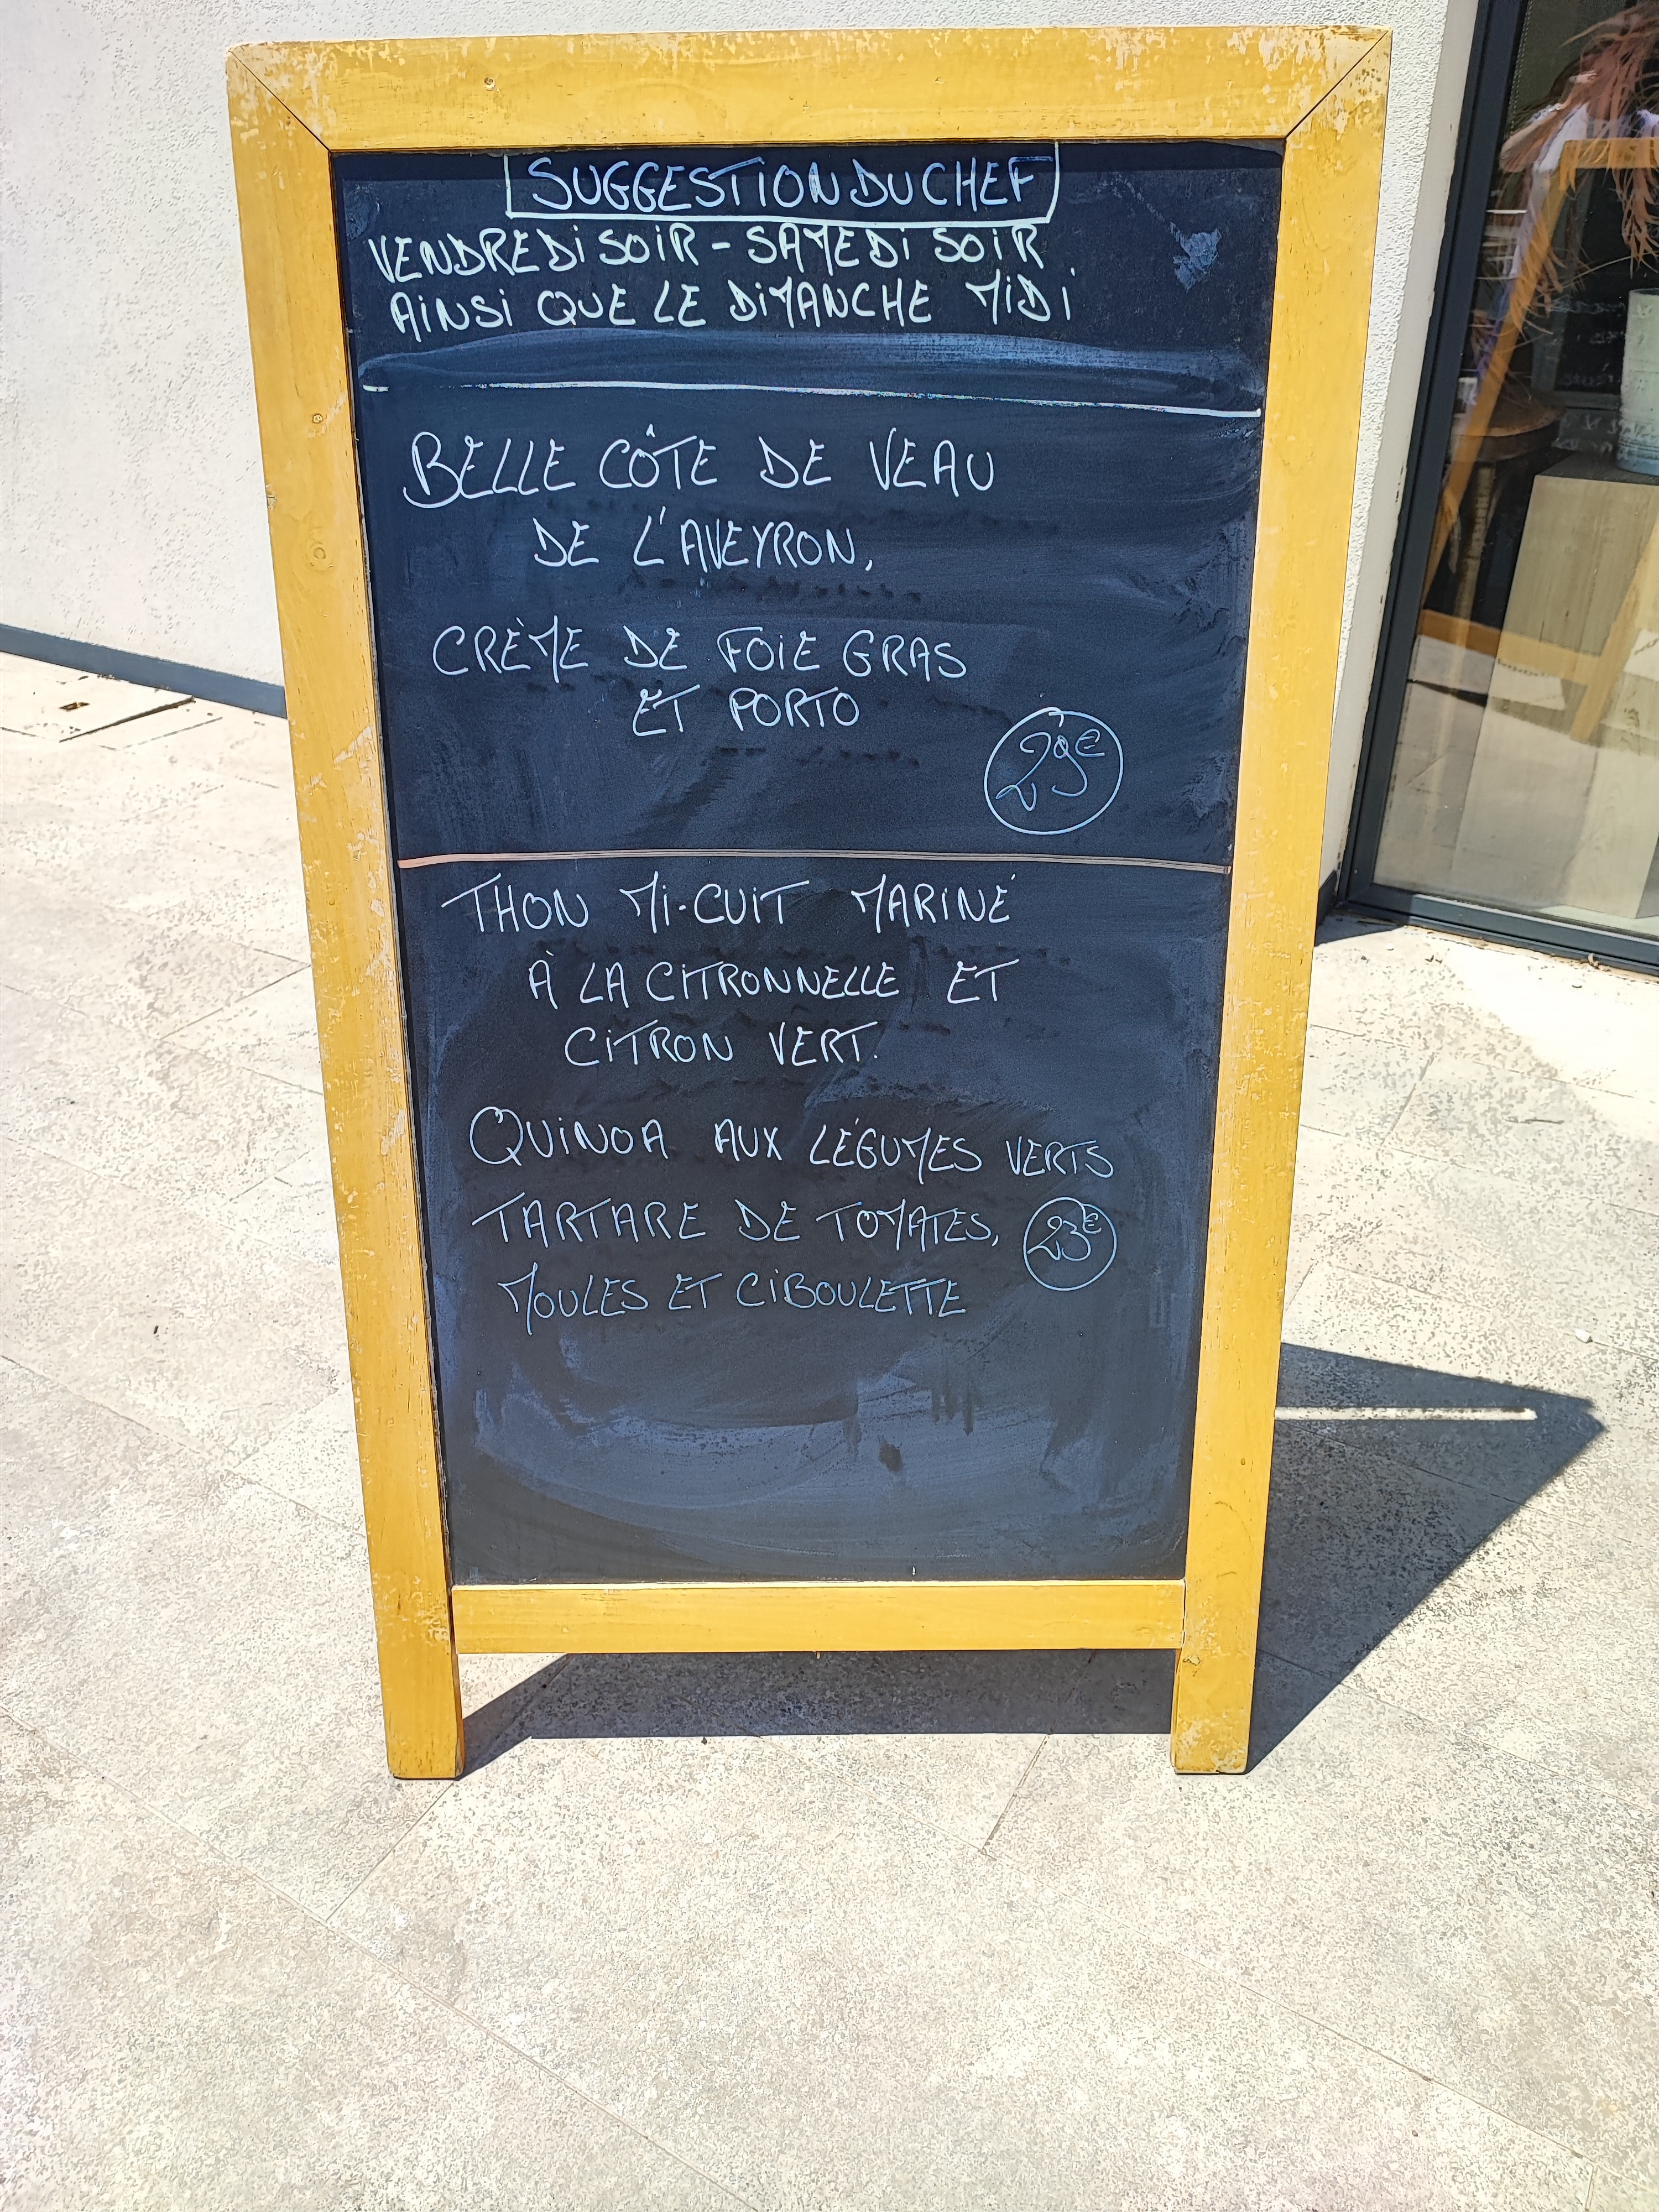 SUGGESTION DU CHEF
VENDREDI SOIR - SAMEDI SOIR
AINSI QUE LE DIMANCHE MIDI
BELLE CÔTE DE VEAU
DE L'AVEYRON,
CRÈME DE FOIE GRAS
ET PORTO
29€
THON MI-CUIT MARINÉ
À LA CITRONNELLE ET
CITRON VERT.
QUINOA AUX LÉGUMES VERTS
TARTARE DE TOMATES,
23€
MOULES ET CIBOULETTE